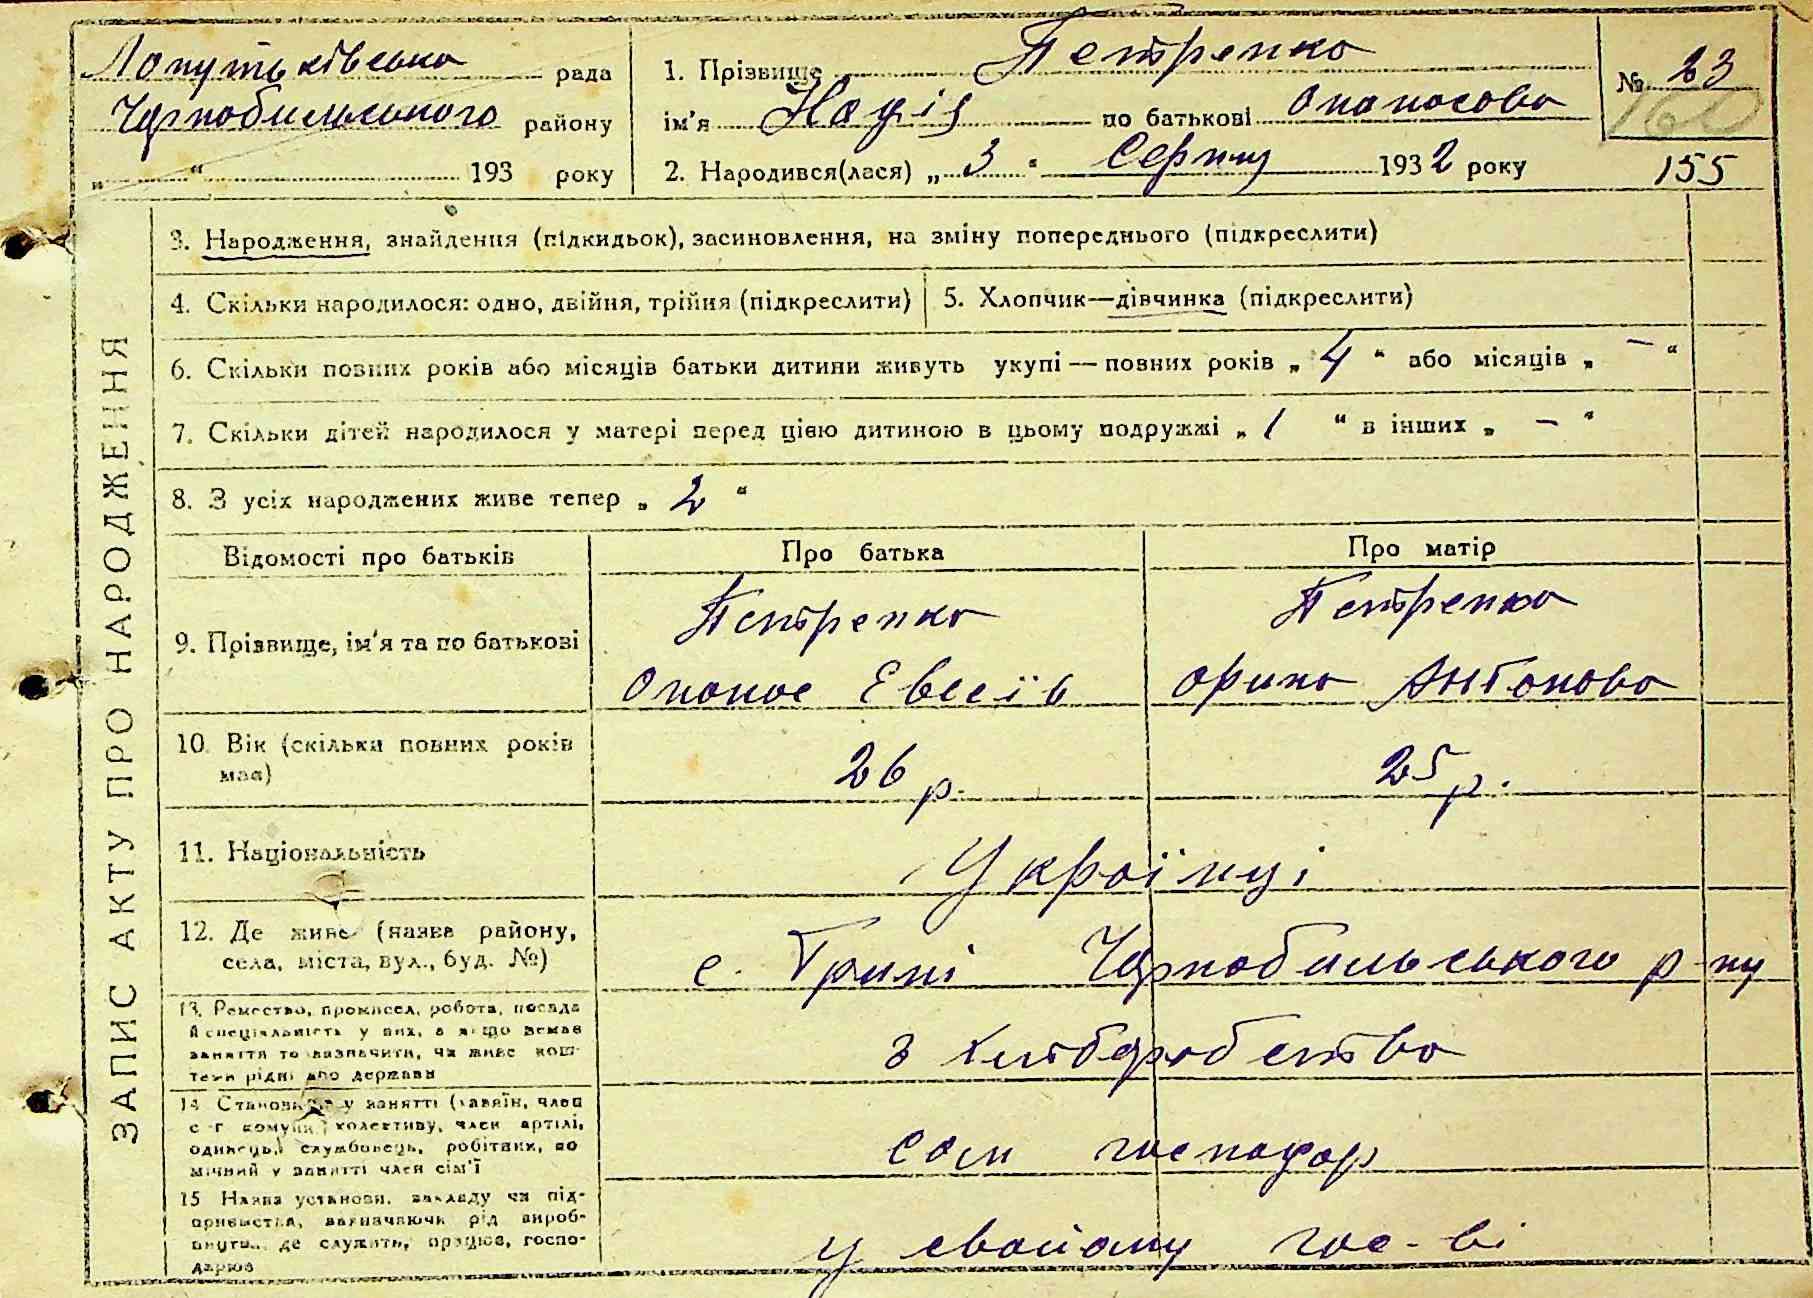 Лопутьківська рада
Чорнобильського району
„ “ 193 року
1. Прізвище Петренко
ім'я Надія по батькові Опанасова
2. Народився(лася) „ 3 “ Серпня 1932 року
№ 23
160
155
ЗАПИС АКТУ ПРО НАРОДЖЕННЯ
3. Народження, знайдення (підкидьок), засиновлення, на зміну попереднього (підкреслити)
4. Скільки народилося: одно, двійня, трійня (підкреслити)
5. Хлопчик—дівчинка (підкреслити)
6. Скільки повних років або місяців батьки дитини живуть укупі — повних років „ 4 “ або місяців „ — “
7. Скільки дітей народилося у матері перед цією дитиною в цьому подружжі „ 1 “ в інших „ — “
8. З усіх народжених живе тепер „ 2 “
Відомості про батьків Про батька Про матір
9. Прізвище, ім'я та по батькові
Петренко
Опанас Евсеїв
Петренко
Орина Антонова
10. Вік (скільки повних років
має)
26 р.
25 р.
11. Національність
Українці
12. Де живе (назва району,
села, міста, вул., буд. №)
с. Грині Чорнобильського р-ну
13. Ремество, промисел, робота, посада
й спеціяльність у них, а якщо немає
заняття то зазначити, чи живе кош-
теми рідні або держави
з хліборобства
14 Становище у занятті (хазяїн, член
с-г комуни, колективу, член артілі,
одинець,) службовець, робітник, по
мічний у занятті член сім'ї
сам господар
15 Назва установи, закладу чи під-
приємства, зазначаючи рід вироб-
ництва, де служить, працює, госпо-
дарює
у своїому гос-ві